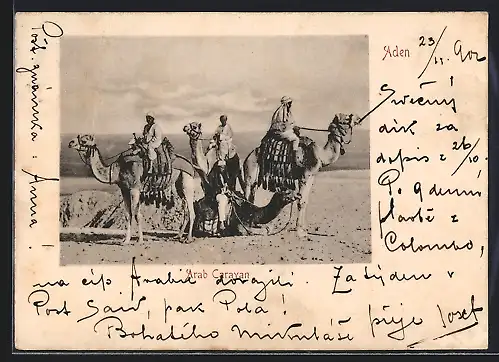 Aden 23/11. 902
Srdečný
dík za
dopis z 26/10
Po 9 denní
plavbě z
Colombo,
Arab Caravan
na cíp Arabie dorazili. Za týden v
Port Said, pak Pola!
Bohatého Mikuláše přeje Josef
Pošt. známka : Anna!